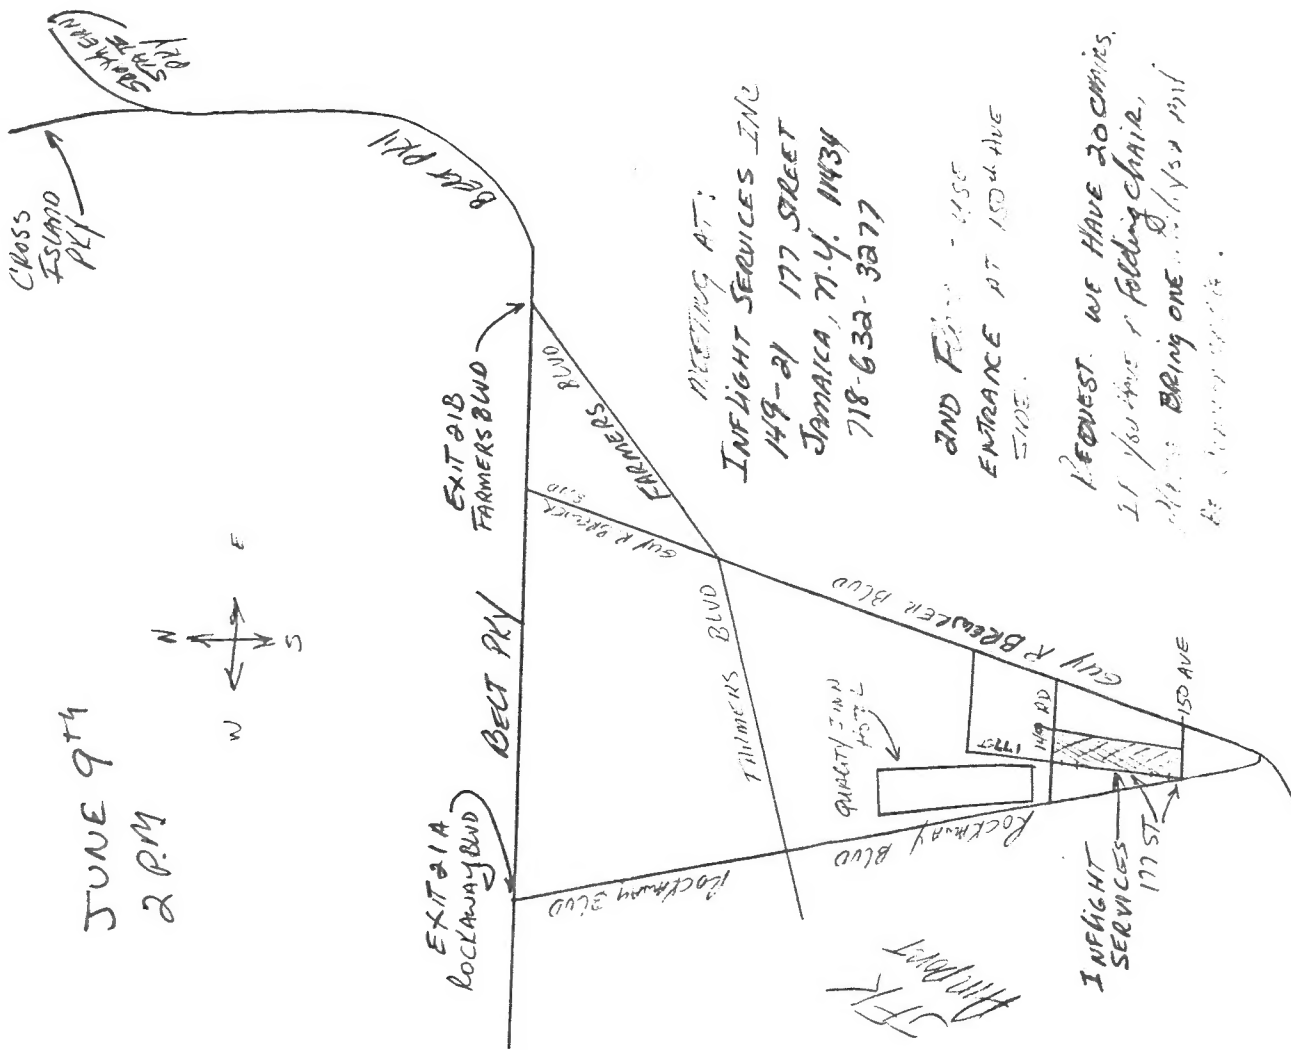 JUNE 9TH
2 P.M
N
W
E
S
CROSS
ISLAND
PKY
SOUTHERN
STATE
PKY
BELT PKY
EXIT 21B
FARMERS BLVD
EXIT 21A
ROCKAWAY BLVD
BELT PKY
FARMERS BLVD
GUY R BREWER BLVD
FARMERS BLVD
GUY R BREWER BLVD
ROCKAWAY BLVD
ROCKAWAY BLVD
QUALITY INN
HOTEL
177 ST
149 RD
150 AVE
INFLIGHT
SERVICES
177 ST
JFK
AIRPORT
MEETING AT:
INFLIGHT SERVICES INC
149-21 177 STREET
JAMAICA, N.Y. 11434
718-632-3277
2ND FLOOR - USE
ENTRANCE AT 150th AVE
SIDE.
REQUEST. WE HAVE 20 CHAIRS.
If you HAVE A Folding CHAIR,
BRING ONE